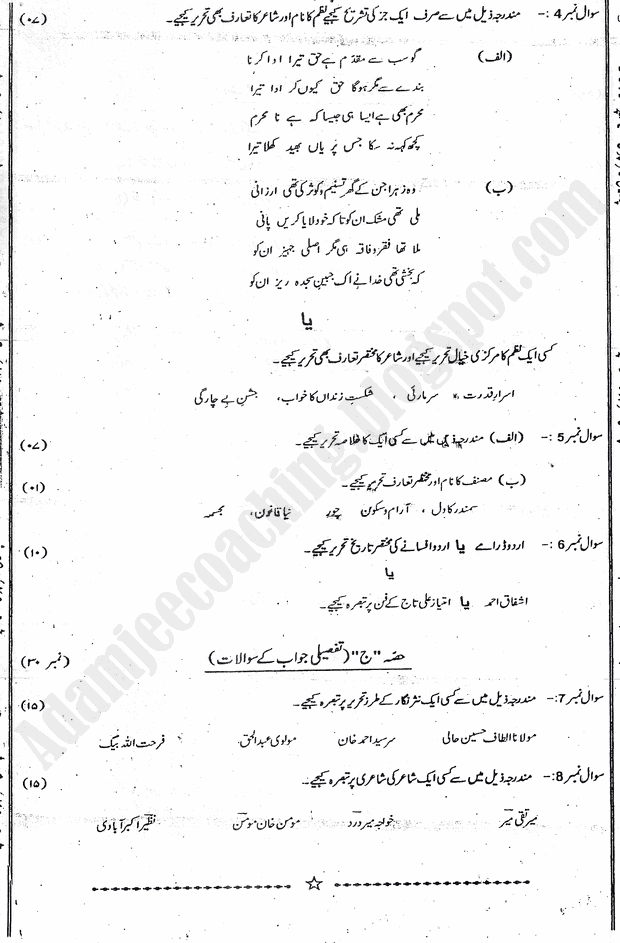 سوال نمبر 4 :- مندرجہ ذیل میں سے صرف ایک جز کی تشریح کیجیے نظم کا نام اور شاعر کا تعارف بھی تحریر کیجیے۔ (۰۷)
(الف) گو سب سے مقدّم ہے حق تیرا ادا کرنا
بندے سے مگر ہو گا حق کیوں کر ادا تیرا
محرم بھی ہے ایسا ہی جیسا کہ ہے نا محرم
کچھ کہہ نہ سکا جس پر یاں بھید کھلا تیرا
(ب) وہ زہرا جن کے گھر تسنیم و کوثر کی تھی ارزانی
ملی تھی مشک ان کو تا کہ خود لایا کریں پانی
ملا تھا فقر و فاقہ ہی مگر اصلی جہیز ان کو
کہ بخشی تھی خدا نے اک جبینِ سجدہ ریز ان کو
یا
کسی ایک نظم کا مرکزی خیال تحریر کیجیے اور شاعر کا مختصر تعارف بھی تحریر کیجیے۔
اسرارِ قدرت ، سرمارئی ، شکستِ زنداں کا خواب، جشنِ بے چارگی
سوال نمبر 5 :- (الف) مندرجہ ذیل میں سے کسی ایک کا خلاصہ تحریر کیجیے۔ (۰۷)
(ب) مصنف کا نام اور مختصر تعارف تحریر کیجیے۔ (۰۱)
سمندر کا دل ، آرام و سکون چور نیا قانون، مجسمہ
سوال نمبر 6 :- اردو ڈرامے یا اردو افسانے کی مختصر تاریخ تحریر کیجیے۔ (۱۰)
یا
اشفاق احمد یا امتیاز علی تاج کے فن پر تبصرہ کیجیے۔
حصّہ "ج" (تفصیلی جواب کے سوالات) (نمبر ۳۰)
سوال نمبر 7:- مندرجہ ذیل میں سے کسی ایک نثر نگار کے طرزِ تحریر پر تبصرہ کیجیے۔ (۱۵)
مولانا الطاف حسین حالی سرسید احمد خان مولوی عبدالحق فرحت اللہ بیگ
سوال نمبر 8:- مندرجہ ذیل میں سے کسی ایک شاعر کی شاعری پر تبصرہ کیجیے۔ (۱۵)
میر تقی میر خواجہ میر درد مومن خان مومن نظیر اکبر آبادی
Adamjeecoaching.blogspot.com